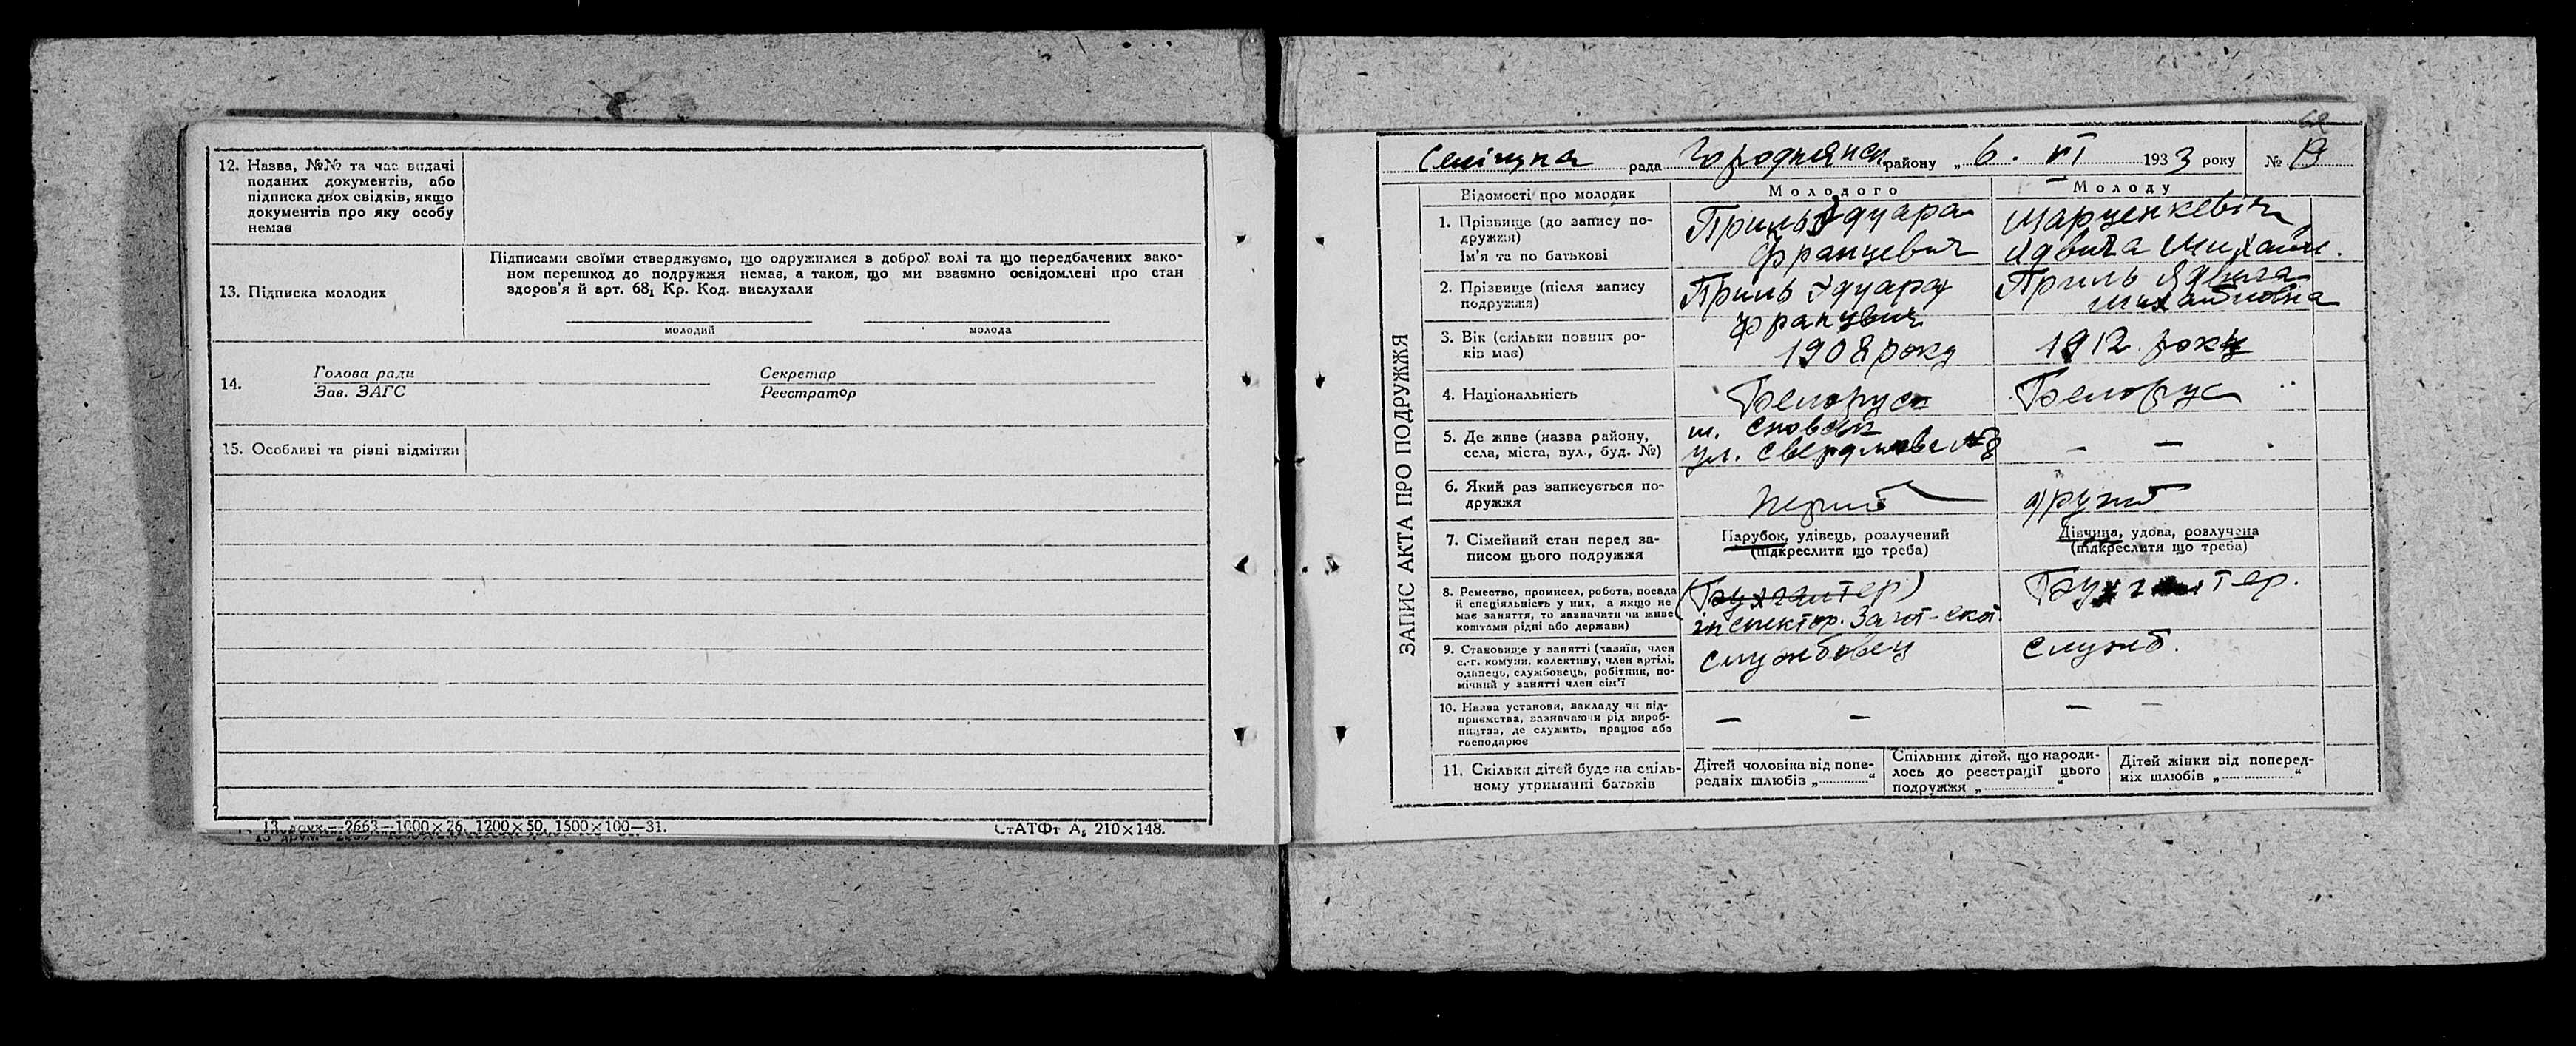 12. Назва, №№ та час видачі
поданих документів, або
підписка двох свідків, якщо
документів про яку особу
немає
13. Підписка молодих
Підписами своїми стверджуємо, що одружилися з доброї волі та що передбачених зако-
ном перешкод до подружжя немає, а також, що ми взаємно освідомлені про стан
здоров'я й арт. 68₁ Кр. Код. вислухали
молодий
молода
14.
Голова ради
Зав. ЗАГС
Секретар
Реєстратор
15. Особливі та різні відмітки
13 друк.—2663—1000×26, 1200×50, 1500×100—31.
СтАТФт А₅ 210×148.
62
рада Городнянск району „ 6. VI 1933 року № 19
ЗАПИС АКТА ПРО ПОДРУЖЖЯ
Відомості про молодих
Молодого
Молоду
1. Прізвище (до запису по-
дружжя)
Ім'я та по батькові
Приль Эдуард
Францевич
Марценкевич
Ядвига Михайл.
2. Прізвище (після запису
подружжя)
Приль Эдуард
Францевич
Приль Ядвига
Михайловна
3. Вік (скільки повних ро-
ків має)
1908 року
1912 року
4. Національність
Белорус
Белорус
5. Де живе (назва району,
села, міста, вул., буд. №)
м. Сновськ
ул. Свердлова №8
— —
6. Який раз записується по-
дружжя
перший
другий
7. Сімейний стан перед за-
писом цього подружжя
Парубок, удівець, розлучений
(підкреслити що треба)
Дівчина, удова, розлучена
(підкреслити що треба)
8. Ремество, промисел, робота, посада
й спеціяльність у них, а якщо не
має заняття, то зазначити чи живе
коштами рідні або держави)
(Бухгалтер)
інспектор. Загот-скот
Бухгалтер.
9. Становище у занятті (хазяїн, член
с.-г. комуни, колективу, член артілі,
одинець, службовець, робітник, по-
мічний у занятті член сім'ї
службовец
служб.
10. Назва установи, закладу чи під-
приємства, зазначаючи рід вироб-
ництва, де служить, працює або
господарює
— —
— —
11. Скільки дітей буде на спіль-
ному утриманні батьків
Дітей чоловіка від попе-
редніх шлюбів „..........“
Спільних дітей, що народи-
лось до реєстрації цього
подружжя „..........“
Дітей жінки від поперед-
ніх шлюбів „..........“